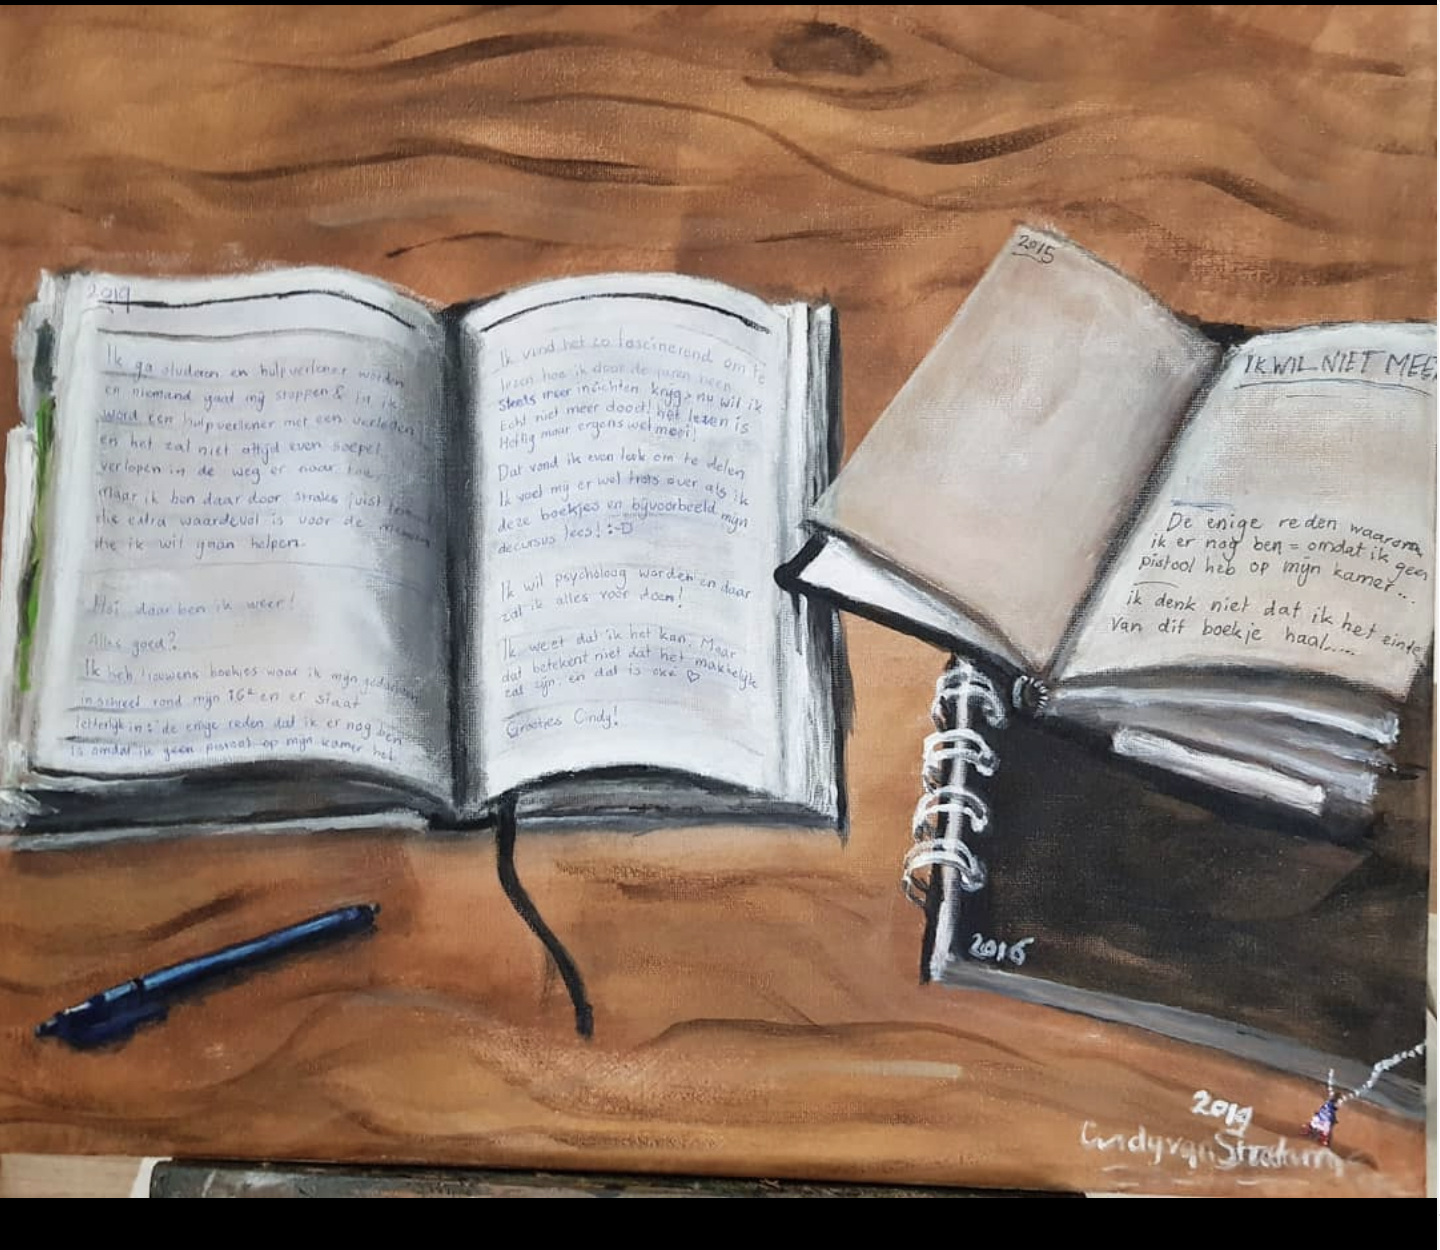 2019
Ik ga studeren en hulpverlener worden
en niemand gaat mij stoppen & in ik
word een hulpverlener met een verleden
en het zal niet altijd even soepel
verlopen in de weg er naar toe,
maar ik ben daar door straks juist
die extra waardevol is voor de mensen
die ik wil gaan helpen.
Hoi daar ben ik weer!
Alles goed?
Ik heb trouwens boekjes waar ik mijn gedachten
in schreef rond mijn 16e en er staat
letterlijk in: 'de enige reden dat ik er nog ben
is omdat ik geen pistool op mijn kamer heb
Ik vind het zo fascinerend om te
lezen hoe ik door de jaren heen
steeds meer inzichten krijg > nu wil ik
echt niet meer dood! het lezen is
Heftig maar ergens wel mooi!
Dat vond ik even leuk om te delen
Ik voel mij er wel trots over als ik
deze boekjes en bijvoorbeeld mijn
decursus lees! :-D
Ik wil psycholoog worden en daar
zal ik alles voor doen!
Ik weet dat ik het kan, Maar
dat betekent niet dat het makkelijk
zal zijn, en dat is oké ♡
Groetjes Cindy!
2015
IK WIL NIET MEE
De enige reden waarom
ik er nog ben = omdat ik geen
pistool heb op mijn kamer...
ik denk niet dat ik het einde
van dit boekje haal.....
2016
2019
Cindy van Stratum